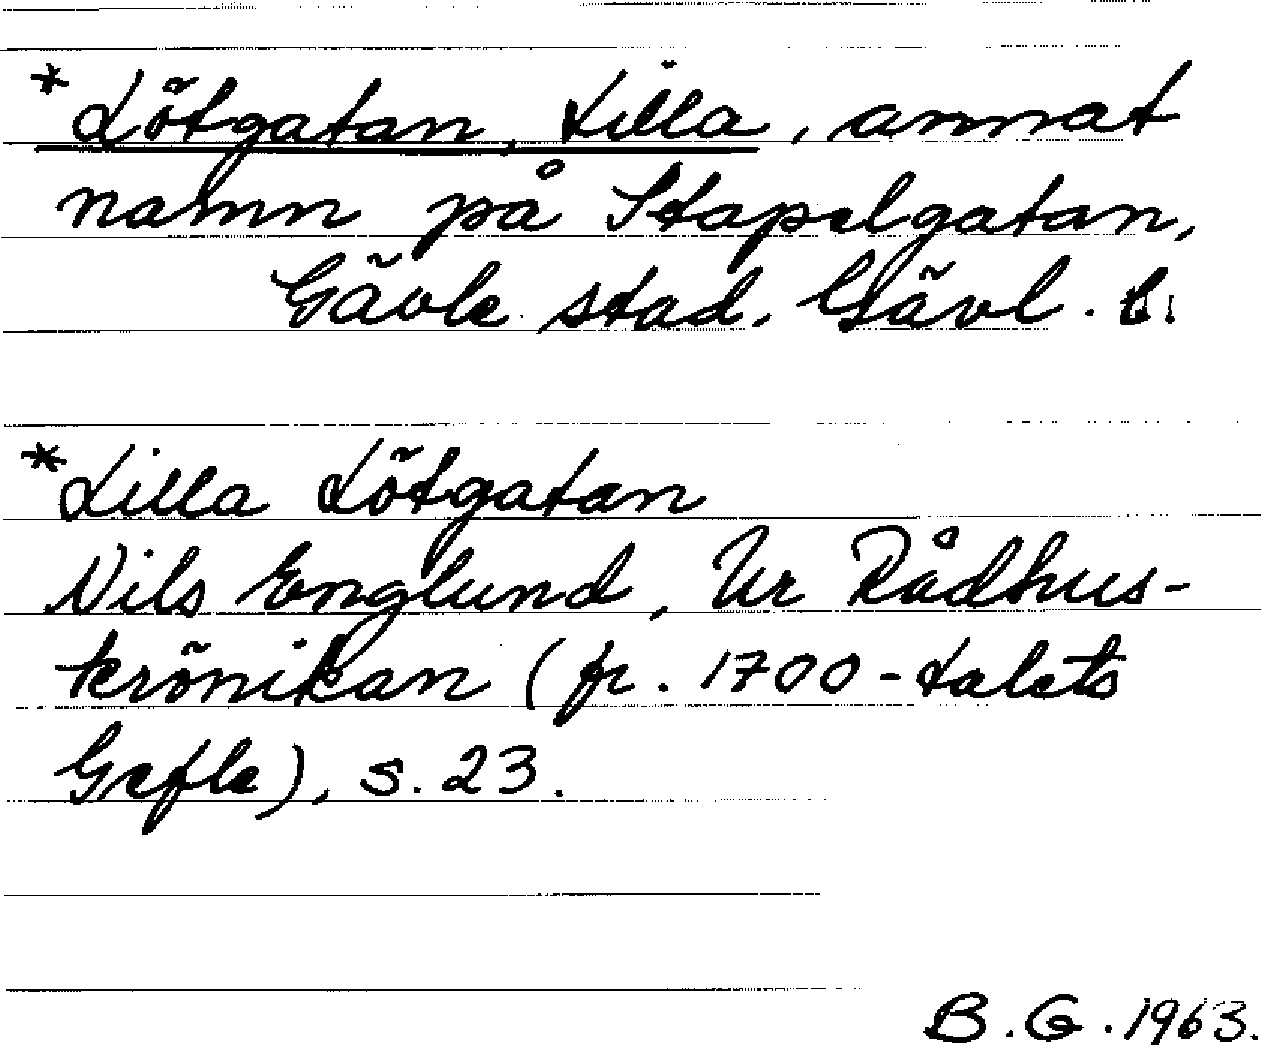 *Lötgatan, Lilla, annat
namn på Stapelgatan,
Gävle stad, Gävl. l.
*Lilla Lötgatan
Nils Englund, Ur Rådhus-
krönikan (fr. 1700-talets
Gefle), s. 23.
B.G. 1963.